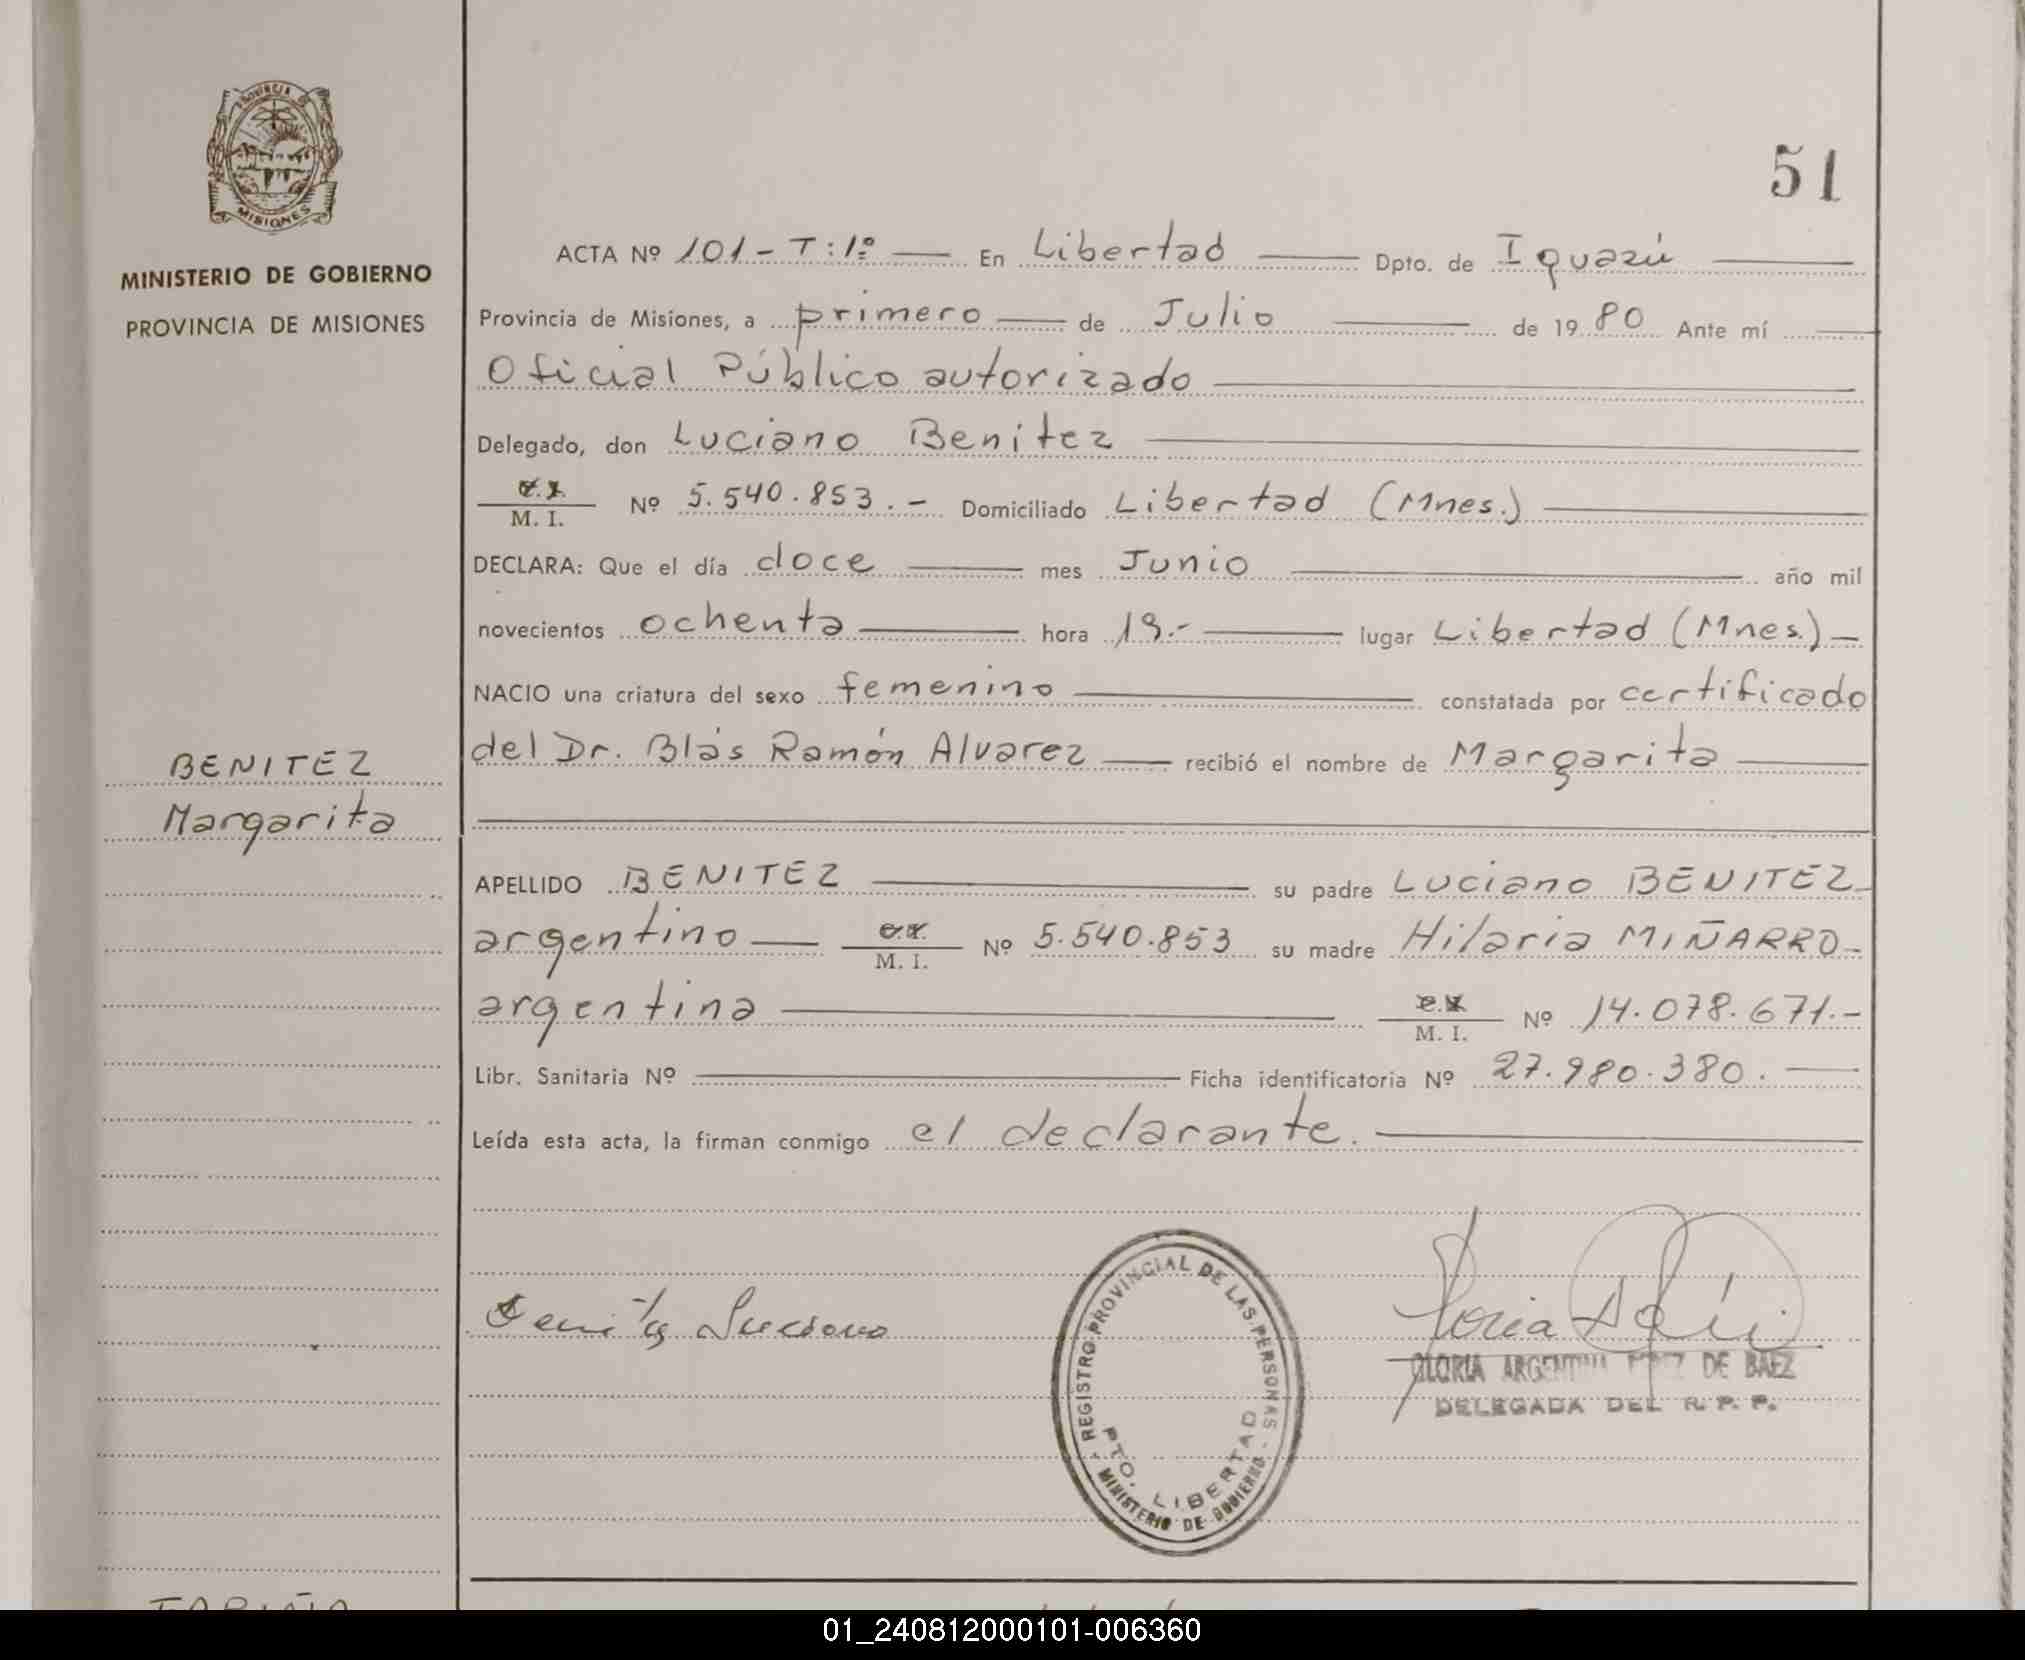 PROVINCIA DE
MISIONES
MINISTERIO DE GOBIERNO
PROVINCIA DE MISIONES
51
ACTA Nº 101 - T: 1º — En Libertad — Dpto. de Iguazú —
Provincia de Misiones, a primero — de Julio — de 19 80 Ante mí —
Oficial Público autorizado —
Delegado, don Luciano Benitez —
M. I. Nº 5.540.853.- Domiciliado Libertad (Mnes.) —
DECLARA: Que el día doce — mes Junio — año mil
novecientos ochenta — hora 19.- — lugar Libertad (Mnes.) —
NACIO una criatura del sexo femenino — constatada por certificado
del Dr. Blás Ramón Alvarez — recibió el nombre de Margarita —
BENITEZ
Margarita
APELLIDO BENITEZ — su padre Luciano BENITEZ-
argentino — M. I. Nº 5.540.853 su madre Hilaria MIÑARRO-
argentina — M. I. Nº 14.078.671.-
Libr. Sanitaria Nº — Ficha identificatoria Nº 27.980.380. —
Leída esta acta, la firman conmigo el declarante. —
Benitez Luciano
REGISTRO PROVINCIAL DE LAS PERSONAS
PTO. LIBERTAD
- MINISTERIO DE GOBIERNO -
GLORIA ARGENTINA PEREZ DE BAEZ
DELEGADA DEL R. P. P.
01_240812000101-006360